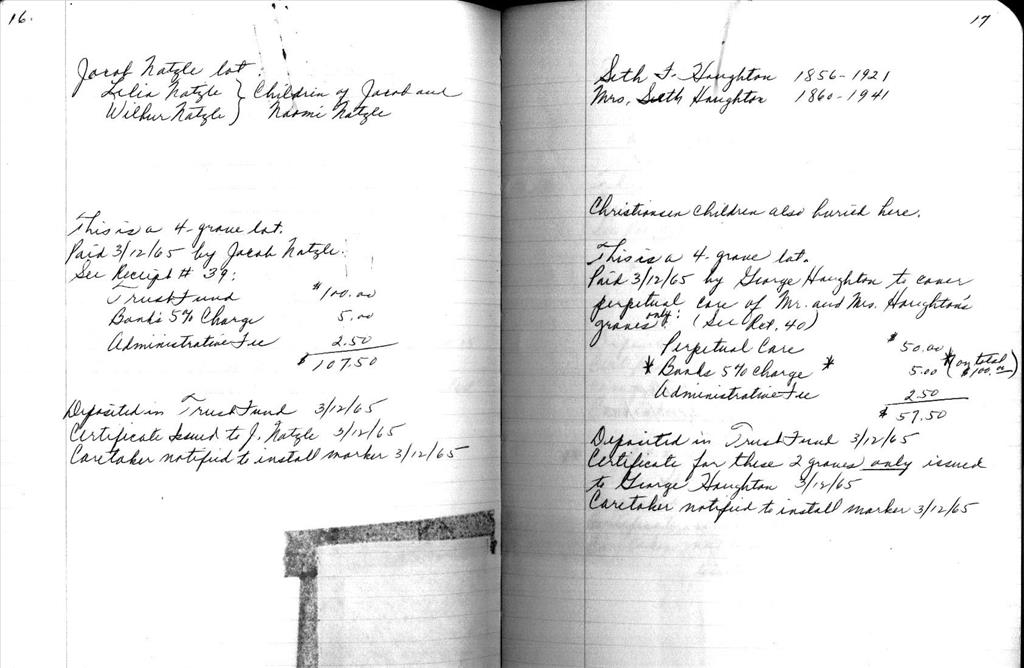 16.
Jacob Natzle lot:
Lelia Natzle } Children of Jacob and
Wilbur Natzle } Naomi Natzle
This is a 4-grave lot.
Paid 3/12/65 by Jacob Natzle.
See Receipt # 39:
Trust Fund $100.00
Bank's 5% Charge 5.00
Administrative Fee 2.50
$107.50
Deposited in Trust Fund 3/12/65
Certificate Issued to J. Natzle 3/12/65
Caretaker notified to install marker 3/12/65
17
Seth F. Houghton 1856-1921
Mrs. Seth Houghton 1860-1941
Christiansen Children also buried here.
This is a 4-grave lot.
Paid 3/12/65 by George Houghton to cover
perpetual care of Mr. and Mrs. Houghton's
graves only: (See Rct. 40)
Perpetual Care $50.00
* Bank's 5% Charge * 5.00 *(on total $100.00)
Administrative Fee 2.50
$57.50
Deposited in Trust Fund 3/12/65
Certificate for these 2 graves only issued
to George Houghton 3/12/65
Caretaker notified to install marker 3/12/65